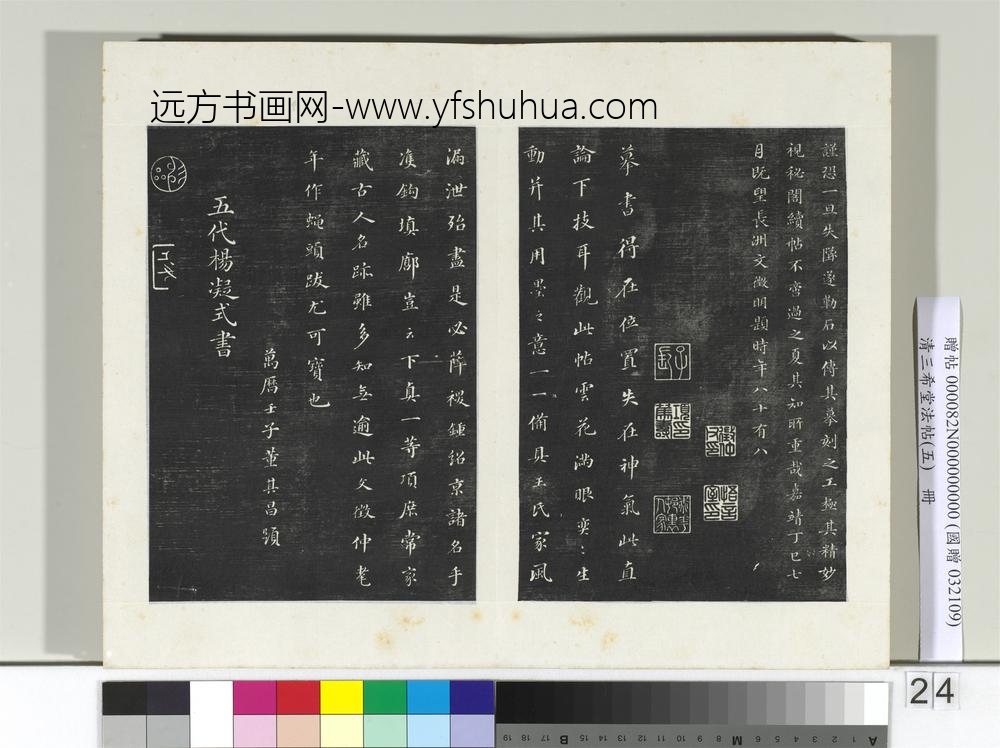 远方书画网-www.yfshuhua.com
謹恐一旦失隊遂勒石以傳其摹刻之工極其精妙
視秘閣續帖不啻過之夏其知所重哉嘉靖丁巳七
月既望長洲文徵明題時年八十有八
摹書得在位置失在神氣此直
論下技耳觀此帖雲花滿眼奕〻生
動並其用墨之意一一備具王氏家風
漏泄殆盡是必薛稷鍾紹京諸名手
雙鉤填廓豈云下真一等項庶常家
藏古人名跡雖多知無逾此文徵仲耄
年作蠅頭跋尤可寶也
萬曆壬子董其昌題
五代楊凝式書
贈帖 000082N000000000 (國贈 032109)
清三希堂法帖(五) 冊
24
19 18 17 16 B 15 14 13 12 11 10 9 8 M 7 6 5 4 3 2 1 A